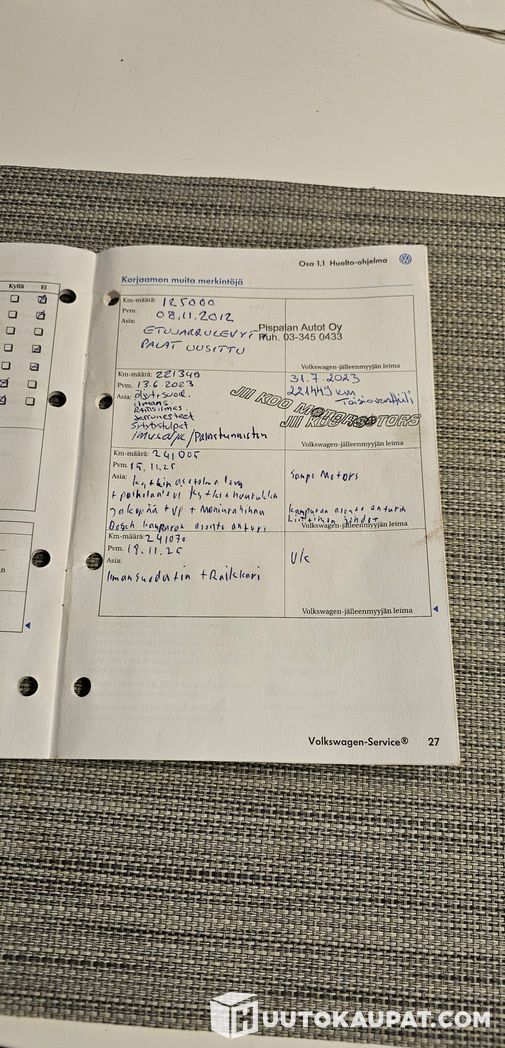 Kyllä Ei
Osa 1.1 Huolto-ohjelma
Korjaamon muita merkintöjä
Km-määrä: 125000
Pvm. 08.11.2012
Asia:
ETUJARRULEVYT
PALAT UUSITTU
Pispalan Autot Oy
Puh. 03-345 0433
Volkswagen-jälleenmyyjän leima
Km-määrä: 221349
Pvm. 13.6 2023
Asia: öljyt+suod.
ilmans
Raitisilmas
Jarrunesteet
Sytytystulpat
imusarja/
31.7 2023
221449 km
JII KOO MOTORS
JII KOO MOTORS
Volkswagen-jälleenmyyjän leima
Km-määrä: 241005
Pvm. 15.11.25
Asia: kytkin asetelma levy
jakopää + vp + Moniurahihna
Bosch kampiakselin asento anturi
Motors
Volkswagen-jälleenmyyjän leima
Km-määrä: 241070
Pvm. 18.11.25
Asia:
Ilmansuodatin +
Volkswagen-jälleenmyyjän leima
Volkswagen-Service® 27
HUUTOKAUPAT.COM